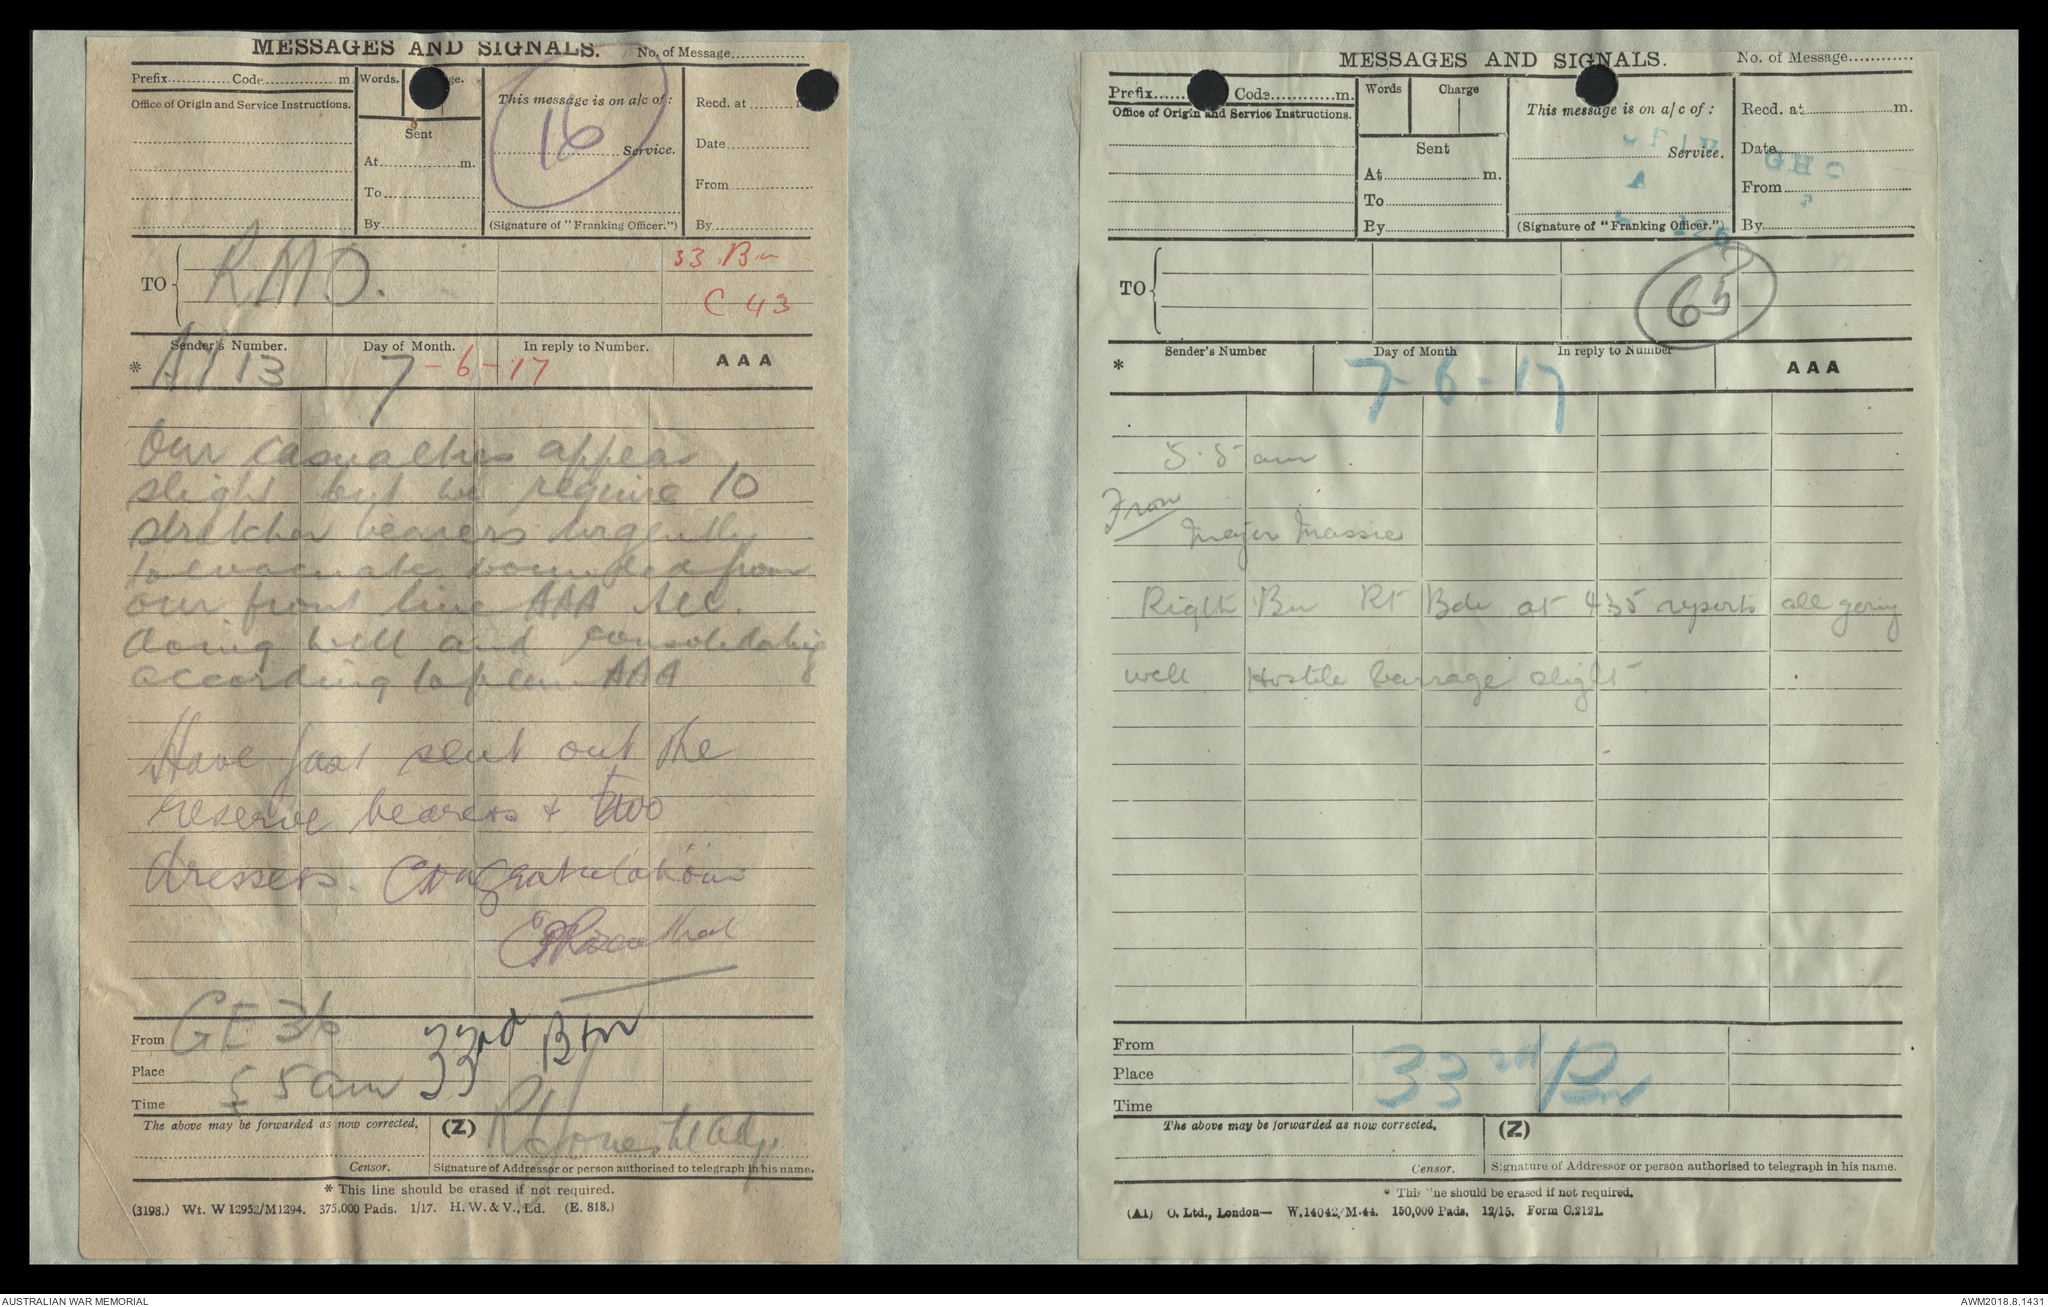 MESSAGES AND SIGNALS.
No. of Message
Prefix Code m
Words.
Office of Origin and Service Instructions.
Sent
At m.
To
By
This message is on a/c of:
16
Service.
(Signature of "Franking Officer.")
Recd. at
Date
From
By
TO
RMO.
33 Bn
C 43
Sender's Number.
Day of Month.
In reply to Number.
AAA
* 13
7-6-17
Our casualties appear
slight but we require 10
stretcher bearers urgently
to evacuate wounded from
our front line AAA All
doing well and consolidating
according to plan AAA
Have just sent out the
reserve bearers & two
dressers. Congratulations
Rosenthal
From GE 36 33rd Btn
Place
Time 5 5 am
The above may be forwarded as now corrected.
(Z)
Censor.
Signature of Addressor or person authorised to telegraph in his name.
* This line should be erased if not required.
(3198.) Wt. W 12952/M1294. 375,000 Pads. 1/17. H. W. & V., Ld. (E. 818.)
MESSAGES AND SIGNALS.
No. of Message
Prefix Code m.
Words
Charge
Office of Origin and Service Instructions.
Sent
At m.
To
By
This message is on a/c of:
Service.
(Signature of "Franking Officer.")
Recd. at m.
Date
From
By
GHQ
TO
65
Sender's Number
Day of Month
In reply to Number
AAA
*
7-6-17
5.5 am
From
Major Massie
Right Bn Rt Bde at 435 reports all going
well Hostile barrage slight
From
Place
Time
33rd Bn
The above may be forwarded as now corrected.
(Z)
Censor.
Signature of Addressor or person authorised to telegraph in his name.
* This line should be erased if not required.
(A1) O. Ltd., London— W.14042/M.44. 150,000 Pads. 12/15. Form C.2121.
AUSTRALIAN WAR MEMORIAL
AWM2018.8.1431